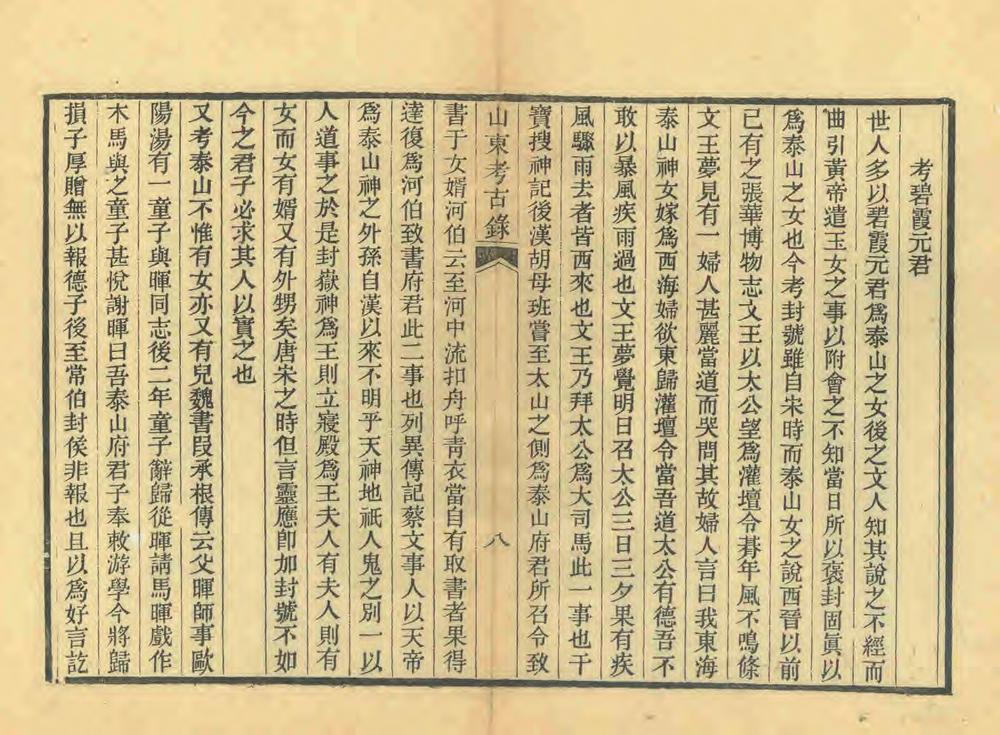 考碧霞元君
世人多以碧霞元君爲泰山之女後之文人知其說之不經而
曲引黃帝遣玉女之事以附會之不知當日所以褒封固眞以
爲泰山之女也今考封號雖自宋時而泰山女之說西晉以前
已有之張華博物志文王以大公望爲灌壇令朞年風不鳴條
文王夢見有一婦人甚麗當道而哭問其故婦人言曰我東海
泰山神女嫁爲西海婦欲東歸灌壇令當吾道太公有德吾不
敢以暴風疾雨過也文王夢覺明日召太公三日三夕果有疾
風驟雨去者皆西來也文王乃拜太公爲大司馬此一事也干
寶搜神記後漢胡母班嘗至太山之側爲泰山府君所召令致
山東考古錄
八
書于女婿河伯云至河中流扣舟呼靑衣當自有取書者果得
達復爲河伯致書府君此二事也列異傳記蔡文事人以天帝
爲泰山神之外孫自漢以來不明乎天神地祇人鬼之別一以
人道事之於是封嶽神爲王則立寢殿爲王夫人有夫人則有
女而女有婿又有外甥矣唐宋之時但言靈應卽加封號不如
今之君子必求其人以實之也
又考泰山不惟有女亦又有兒魏書段承根傳云父暉師事歐
陽湯有一童子與暉同志後二年童子辭歸從暉請馬暉戲作
木馬與之童子甚悅謝暉曰吾泰山府君子奉敕游學今將歸
損子厚贈無以報德子後至常伯封侯非報也且以爲好言訖